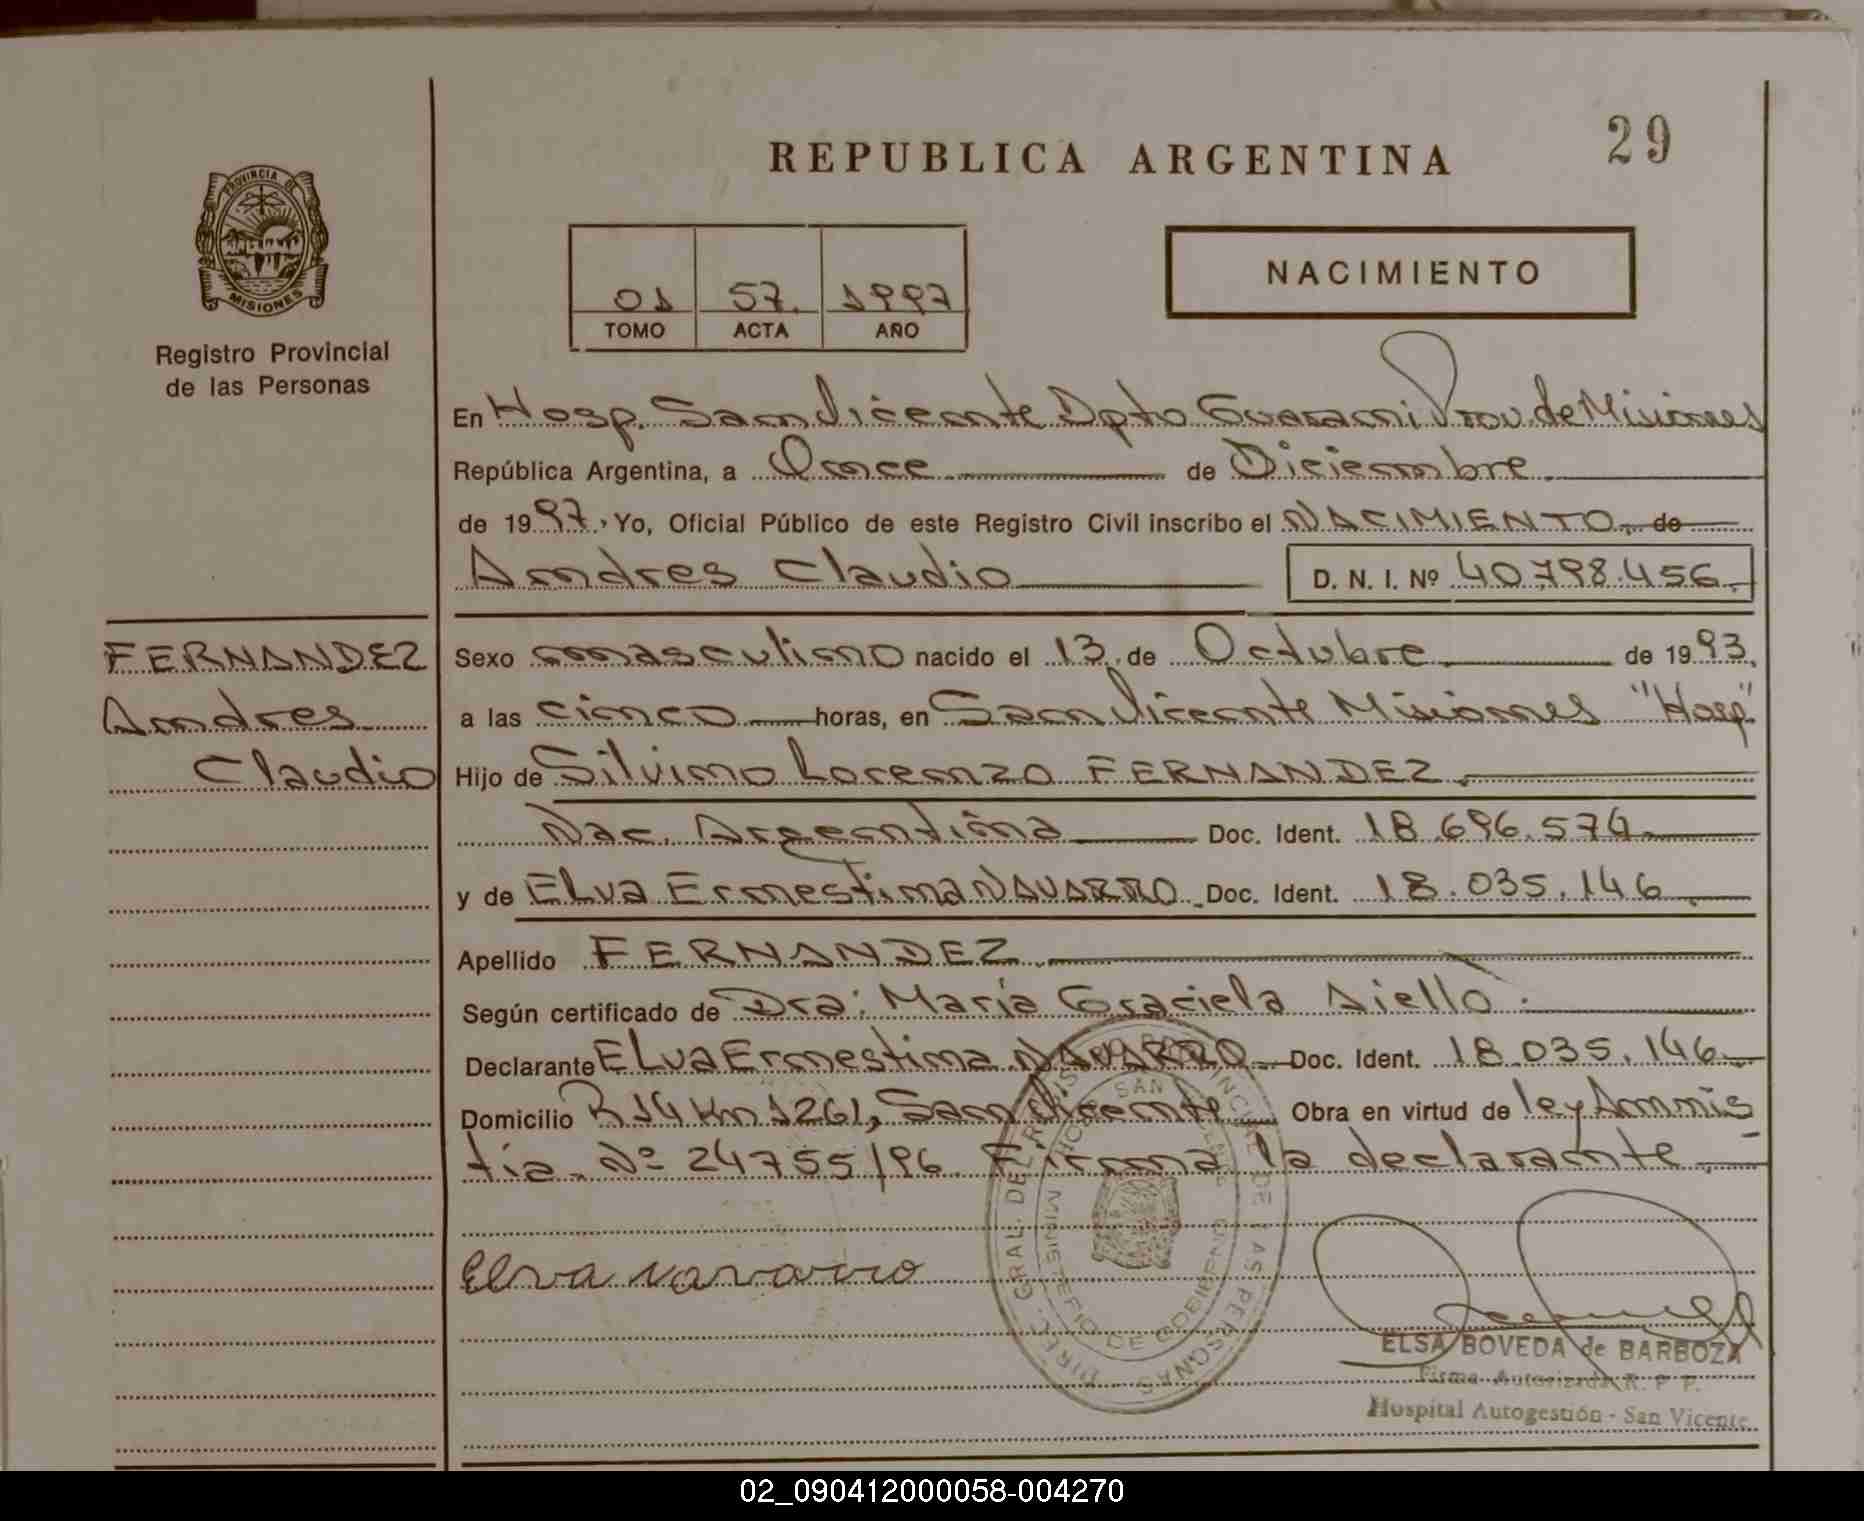 29
REPUBLICA ARGENTINA
PROVINCIA DE
MISIONES
Registro Provincial
de las Personas
01 57. 1997
TOMO ACTA AÑO
NACIMIENTO
En Hosp. San Vicente Dpto Guarani Prov. de Misiones
República Argentina, a Once de Diciembre
de 1997, Yo, Oficial Público de este Registro Civil inscribo el NACIMIENTO. de
Andres Claudio D. N. I. Nº 40.798.456.
FERNANDEZ
Andres
Claudio
Sexo masculino nacido el 13. de Octubre de 1993.
a las cinco horas, en San Vicente Misiones "Hosp"
Hijo de Silvino Lorenzo FERNANDEZ.
Nac. Argentina Doc. Ident. 18.696.574.
y de ELva Ernestina NAVARRO. Doc. Ident. 18.035.146.
Apellido FERNANDEZ.
Según certificado de Dra: Maria Graciela Aiello.
Declarante ELva Ernestina NAVARRO Doc. Ident. 18.035.146.
Domicilio R 14 Km 1261, San Vicente Obra en virtud de ley Amnis
tia. Nº 24755/96. Firma la declarante.
DIREC. GRAL. DEL REGISTRO PROVINCIAL DE LAS PERSONAS
MINISTERIO DE GOBIERNO
HOSP. SAN
Elva Navarro
ELSA BOVEDA de BARBOZA
Firma Autorizada R. P. P.
Hospital Autogestión - San Vicente
02_090412000058-004270